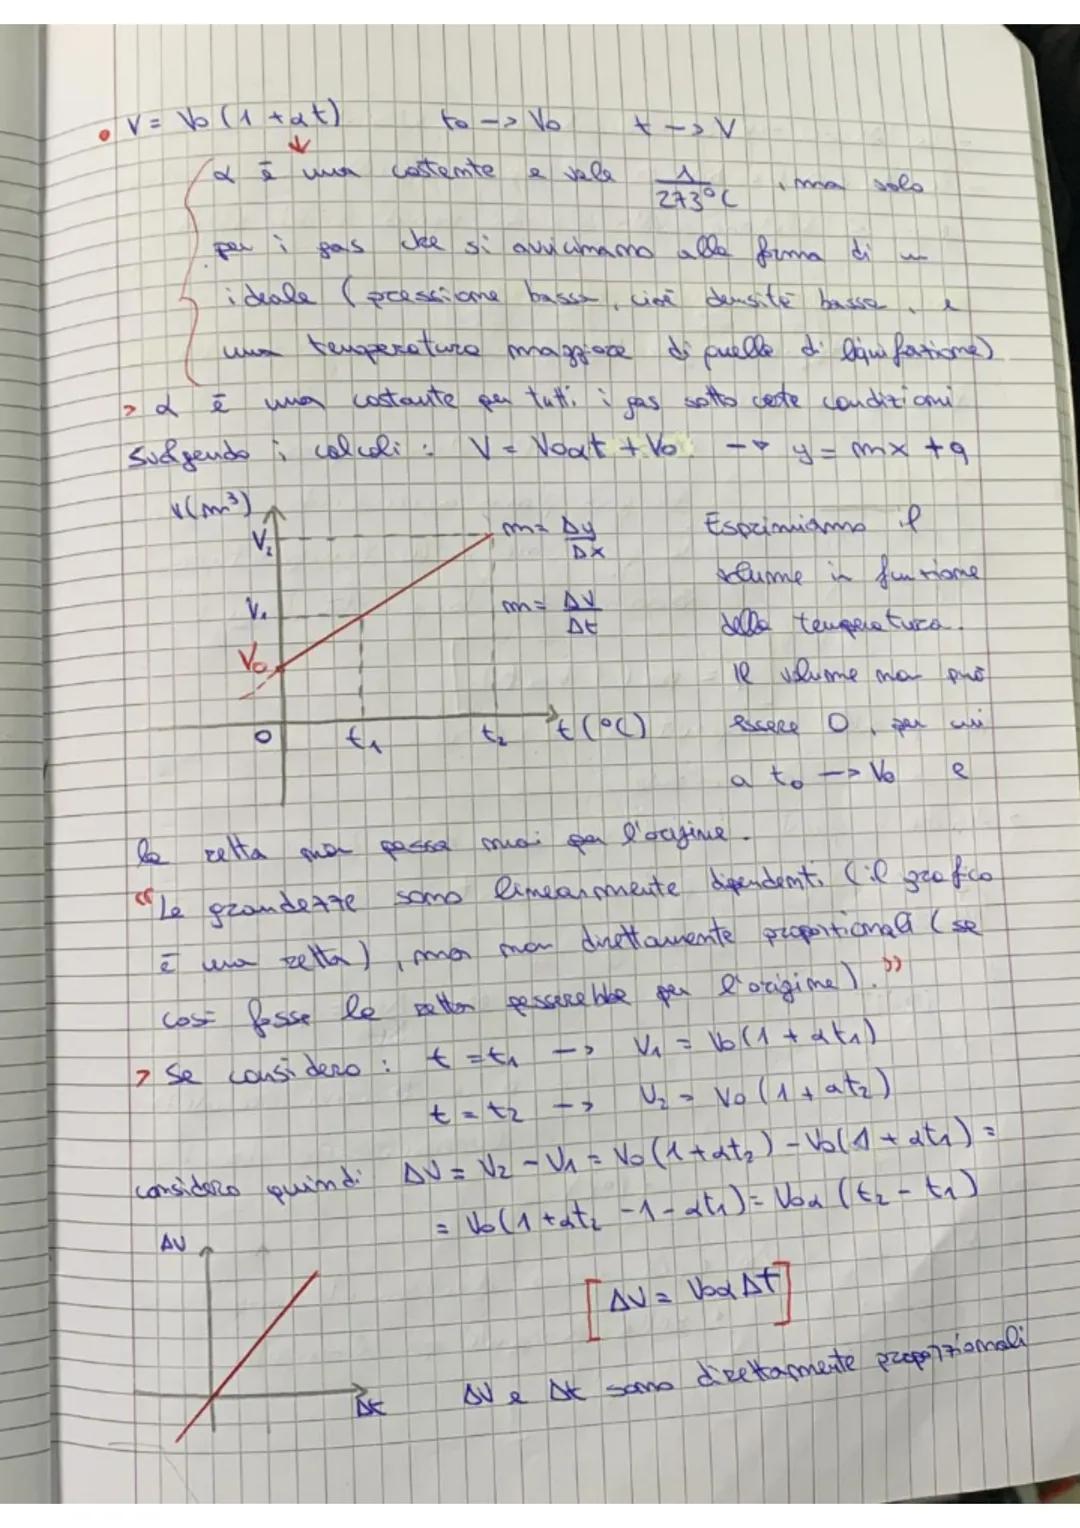 • V = V₀ (1 + αt) t₀ -> V₀ t -> V
α è una costante e vale 1/273°C , ma solo
per i gas che si avvicinano alla forma di un
ideale (pressione bassa, cioè densità bassa, e
una temperatura maggiore di quella di liquifazione)
> α è una costante per tutti i gas sotto certe condizioni
Svolgendo i calcoli : V = V₀αt + V₀ -> y = mx + q
V(m³)
V₂ m = Δy/Δx Esprimiamo il
volume in funzione
V₁ m = ΔV/Δt della temperatura.
V₀ Il volume non può
0 t₁ t₂ t(°C) essere 0, per cui
a t₀ -> V₀ e
la retta non passa mai per l'origine.
“Le grandezze sono linearmente dipendenti (il grafico
è una retta), ma non direttamente proporzionali (se
così fosse la retta passerebbe per l'origine).”
> Se considero : t = t₁ -> V₁ = V₀(1 + αt₁)
t = t₂ -> V₂ = V₀(1 + αt₂)
considero quindi ΔV = V₂ - V₁ = V₀(1+αt₂) - V₀(1 + αt₁) =
= V₀(1 + αt₂ - 1 - αt₁) = V₀α (t₂ - t₁)
ΔV
[ΔV = V₀α Δt]
Δt ΔV e Δt sono direttamente proporzionali